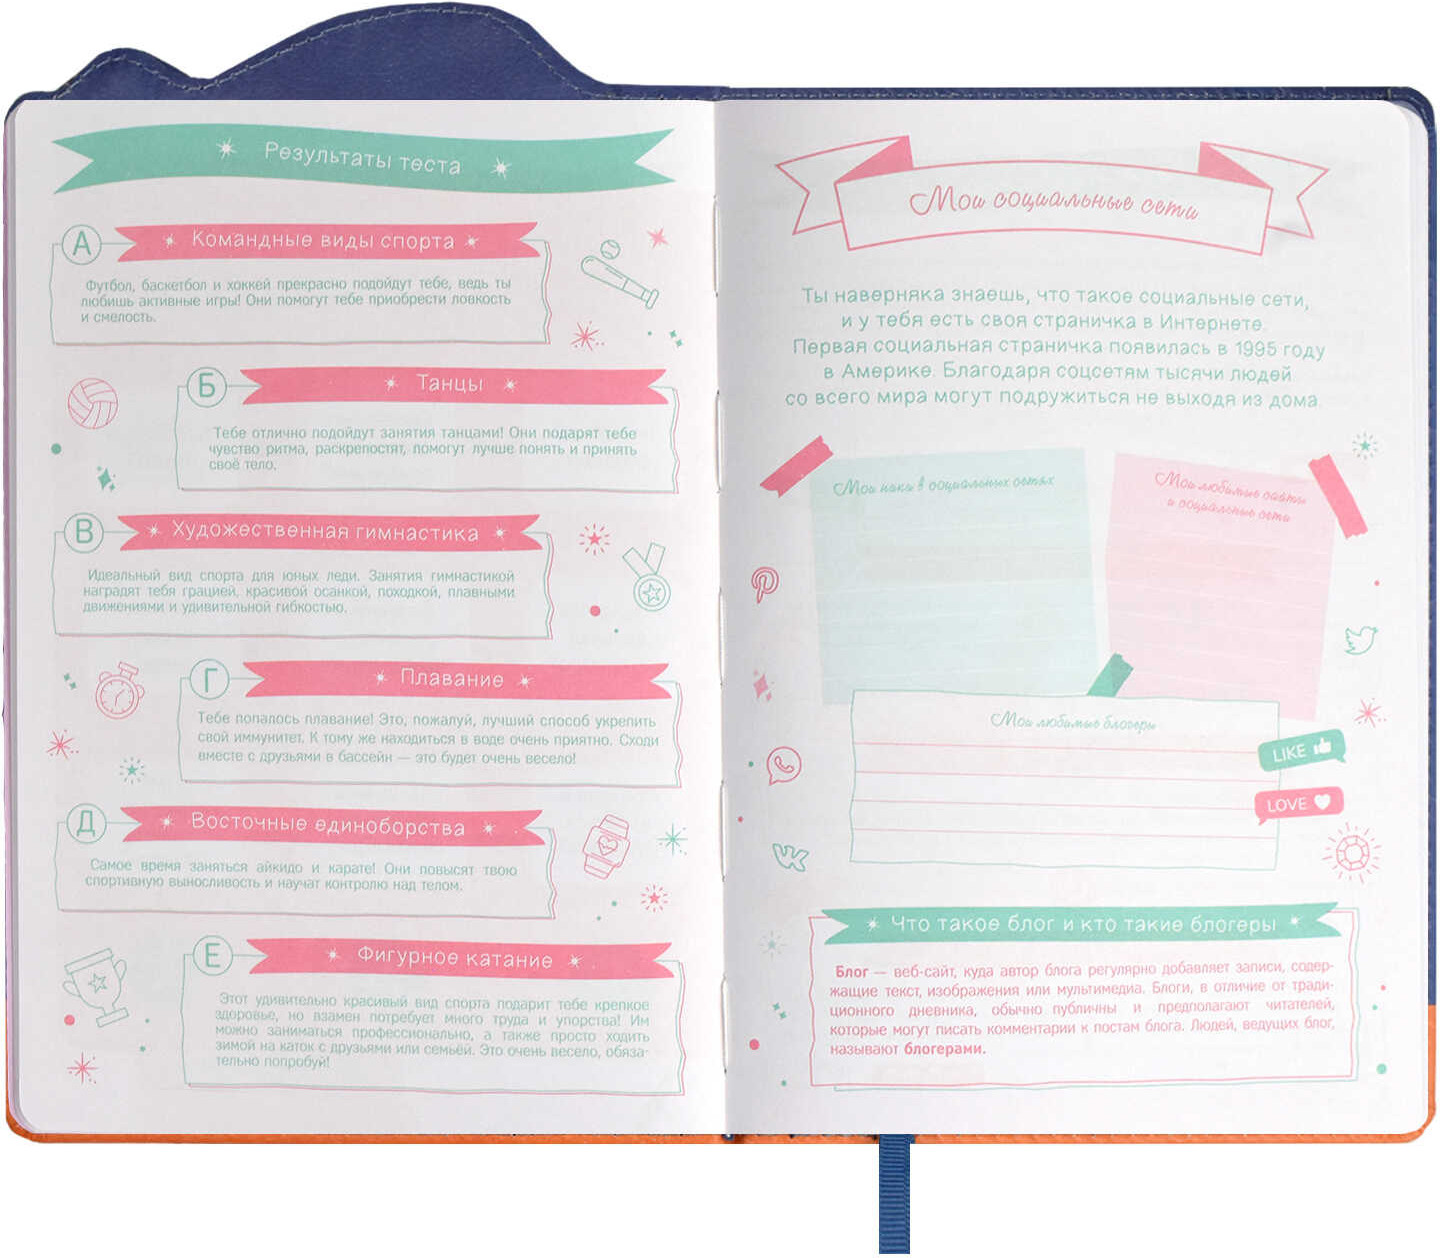 Результаты теста
А
Командные виды спорта
Футбол, баскетбол и хоккей прекрасно подойдут тебе, ведь ты
любишь активные игры! Они помогут тебе приобрести ловкость
и смелость.
Б
Танцы
Тебе отлично подойдут занятия танцами! Они подарят тебе
чувство ритма, раскрепостят, помогут лучше понять и принять
своё тело.
В
Художественная гимнастика
Идеальный вид спорта для юных леди. Занятия гимнастикой
наградят тебя грацией, красивой осанкой, походкой, плавными
движениями и удивительной гибкостью.
Г
Плавание
Тебе попалось плавание! Это, пожалуй, лучший способ укрепить
свой иммунитет. К тому же находиться в воде очень приятно. Сходи
вместе с друзьями в бассейн — это будет очень весело!
Д
Восточные единоборства
Самое время заняться айкидо и карате! Они повысят твою
спортивную выносливость и научат контролю над телом.
Е
Фигурное катание
Этот удивительно красивый вид спорта подарит тебе крепкое
здоровье, но взамен потребует много труда и упорства! Им
можно заниматься профессионально, а также просто ходить
зимой на каток с друзьями или семьёй. Это очень весело, обяза-
тельно попробуй!
Мои социальные сети
Ты наверняка знаешь, что такое социальные сети,
и у тебя есть своя страничка в Интернете.
Первая социальная страничка появилась в 1995 году
в Америке. Благодаря соцсетям тысячи людей
со всего мира могут подружиться не выходя из дома.
Мои ники в социальных сетях
Мои любимые сайты
и социальные сети
Мои любимые блогеры
LIKE
LOVE
Что такое блог и кто такие блогеры
Блог — веб-сайт, куда автор блога регулярно добавляет записи, содер-
жащие текст, изображения или мультимедиа. Блоги, в отличие от тради-
ционного дневника, обычно публичны и предполагают читателей,
которые могут писать комментарии к постам блога. Людей, ведущих блог,
называют блогерами.